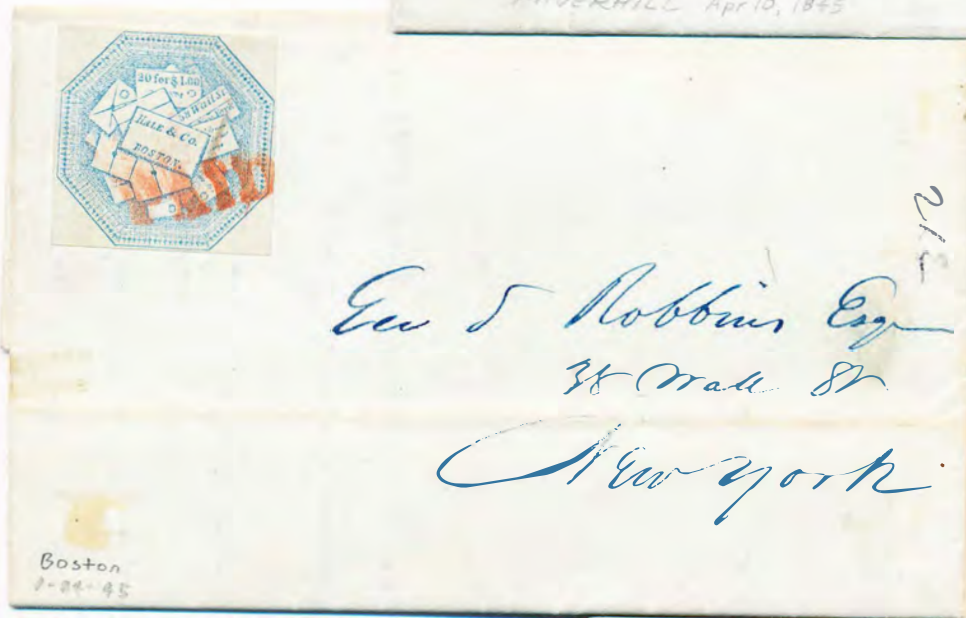 HAVERHILL Apr 10, 1845
20 for $1.00
Wall St
HALE & Co.
BOSTON.
PAID
Geo S Robbins Esq
38 Wall St
New York
Boston